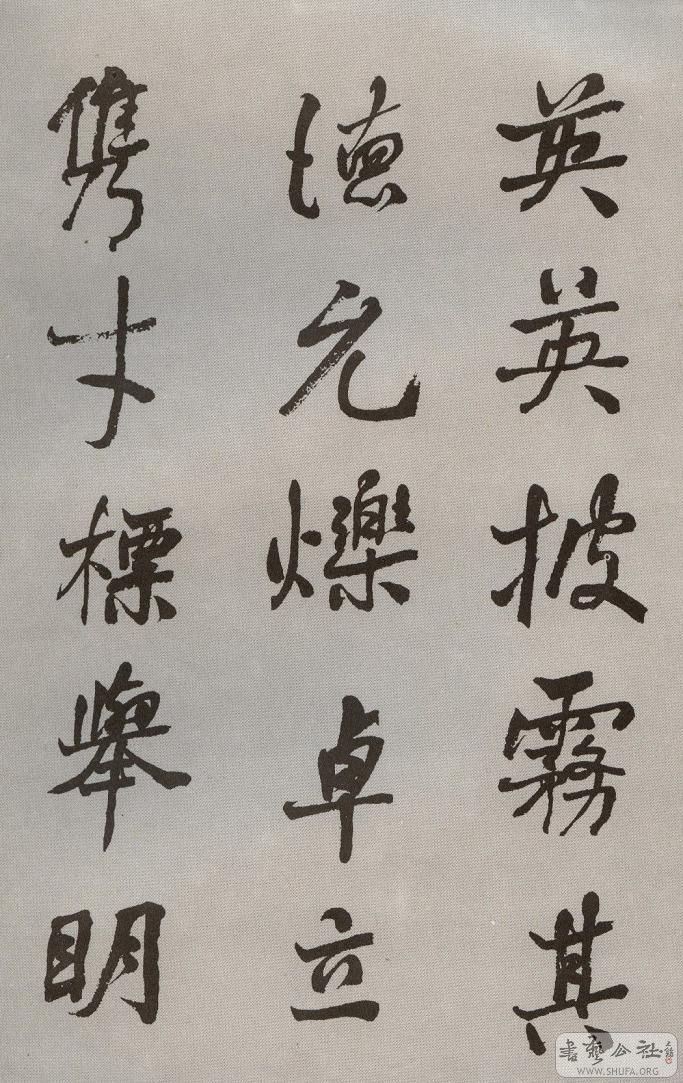 英英披霧其
德允爍卓立
雋才標舉明
書藝公社
WWW.SHUFA.ORG